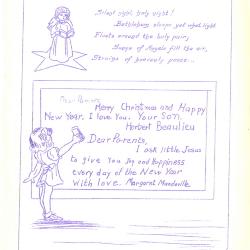 Silent night, holy night!
Bethlehem sleeps, yet what light
Floats around the holy pair;
Songs of Angels fill the air,
Strains of heavenly peace...
Dear Parents,
Merry Christmas and Happy
New Year. I love You. Your Son.
Herbert Beaulieu
Dear Parents,
I ask little Jesus
to give You Joy and Happiness
every day of the New Year
With love. Margaret Mandeville